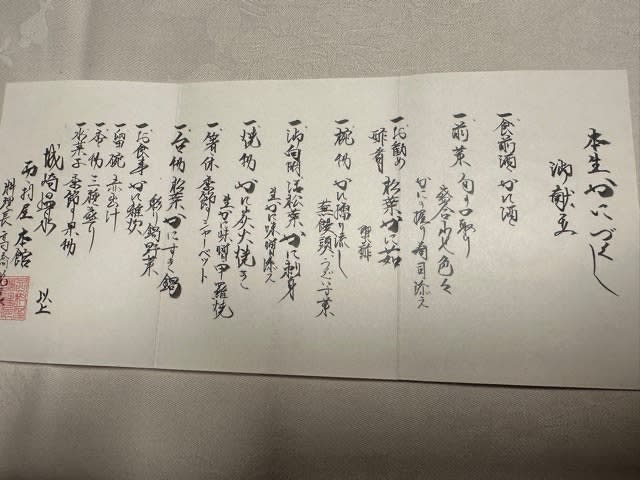 本生かにづくし
御献立
一、食前酒 かに酒
一、前菜 旬の口取り
盛合わせ色々
かに小握り寿司添え
一、お勧め 松葉かに茹
酢肴
聖酢
一、椀物 かに擂り流し
蒸饅頭 うぐいす菜
一、御向附 活松葉かに刺身
生かに味噌添え
一、焼物 かに炭火焼き
生かに味噌甲羅焼
一、箸休 季節のシャーベット
一、台物 松葉かにすき鍋
彩り鍋野菜
一、お食事 かに雑炊
一、留椀 赤出汁
一、香物 三種盛り
一、水菓子 季節の果物
以上
城崎温泉
西村屋本館
料理長 高橋